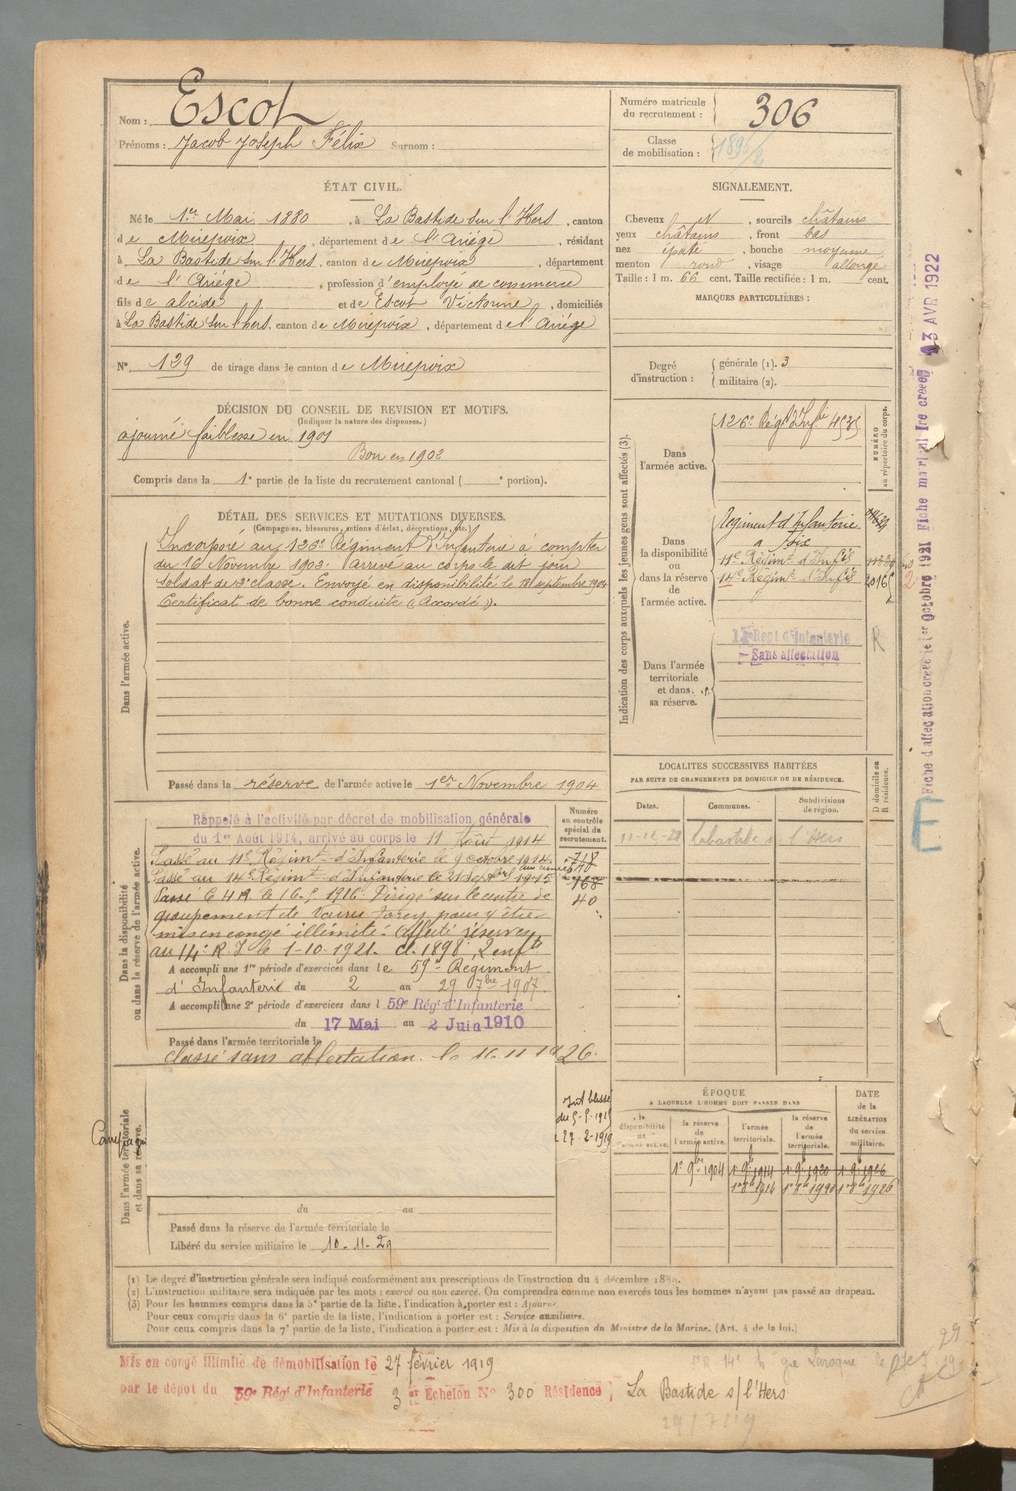 Nom : Escot
Prénoms : Jacob Joseph Félix Surnom :
Numéro matricule du recrutement : 306
Classe de mobilisation :
ÉTAT CIVIL.
Né le 1er Mai 1880, à La Bastide sur l'Hers, canton
de Mirepoix, département de l'Ariége, résidant
à La Bastide sur l'Hers, canton de Mirepoix, département
de l'Ariége, profession d'employé de commerce
fils de alcide et de Escot Victorine, domiciliés
à La Bastide sur l'hers, canton de Mirepoix, département de l'Ariége
N° 129 de tirage dans le canton de Mirepoix
SIGNALEMENT.
Cheveux N, sourcils châtains
yeux châtains, front bas
nez épaté, bouche moyenne
menton rond, visage allongé
Taille : 1 m. 66 cent. Taille rectifiée : 1 m. cent.
MARQUES PARTICULIÈRES :
Degré d'instruction : générale (1). 3
militaire (2).
DÉCISION DU CONSEIL DE REVISION ET MOTIFS.
(Indiquer la nature des dispenses.)
ajourné faiblesse en 1901
Bon en 1902
Compris dans la 1e partie de la liste du recrutement cantonal ( e portion).
DÉTAIL DES SERVICES ET MUTATIONS DIVERSES.
(Campagnes, blessures, actions d'éclat, décorations, etc.)
Dans l'armée active.
Incorporé au 126e Régiment d'Infanterie à compter
du 16 Novembre 1903. Arrivé au corps le dit jour
soldat de 2e classe. Envoyé en disponibilité le 18 septembre 1904
Certificat de bonne conduite « Accordé ».
Passé dans la réserve de l'armée active le 1er Novembre 1904
Indication des corps auxquels les jeunes gens sont affectés (3).
NUMÉRO au répertoire du corps.
Dans l'armée active.
126e Régt d'Infie 4535
Dans la disponibilité ou dans la réserve de l'armée active.
Régiment d'Infanterie
à Foix
11e Régimt d'Infie
14e Régimt d'Infie 2016
Dans l'armée territoriale et dans sa réserve.
Regt d'Infanterie
Sans affectation
R
LOCALITÉS SUCCESSIVES HABITÉES
PAR SUITE DE CHANGEMENTS DE DOMICILE OU DE RÉSIDENCE.
Dates. Communes. Subdivisions de région. D domicile ou R résidence.
Labastide s l'Hers
Dans la disponibilité ou dans la réserve de l'armée active.
Numéro au contrôle spécial du recrutement.
Rappelé à l'activité par décret de mobilisation générale
du 1er Août 1914, arrivé au corps le 11 Août 1914
Passé au 11e Régimt d'Infanterie le 9 octobre 1914.
Passé au 14e Régimt d'Infanterie le 21
168
40
groupement de Vaires Torcy pour y être
mis en congé illimité. Affecté réserves
au 14e R.I. le 1-10-1921. cl. 1898 2 enfts
A accompli une 1re période d'exercices dans le 59e Régiment
d'Infanterie du 2 au 29 7bre 1907.
A accompli une 2e période d'exercices dans l 59e Régt d'Infanterie
du 17 Mai au 2 Juin 1910
Passé dans l'armée territoriale le
classé sans affectation le 11.11.1926.
Dans l'armée territoriale et dans sa réserve.
Campagne
du au
Passé dans la réserve de l'armée territoriale le
Libéré du service militaire le 10-11-29
ÉPOQUE
A LAQUELLE L'HOMME DOIT PASSER DANS
la disponibilité de l'armée active.
la réserve de l'armée active.
l'armée territoriale.
la réserve de l'armée territoriale.
DATE de la LIBÉRATION du service militaire.
1er 9bre 1904 1er 9bre 1914 1er 9bre 1920 1er 9bre 1926
1er 8bre 1916 1er 8bre 1926
(1) Le degré d'instruction générale sera indiqué conformément aux prescriptions de l'instruction du 4 décembre 1889.
(2) L'instruction militaire sera indiquée par les mots : exercé ou non exercé. On comprendra comme non exercés tous les hommes n'ayant pas passé au drapeau.
(3) Pour les hommes compris dans la 5e partie de la liste, l'indication à porter est : Ajourné.
Pour ceux compris dans la 6e partie de la liste, l'indication à porter est : Service auxiliaire.
Pour ceux compris dans la 7e partie de la liste, l'indication à porter est : Mis à la disposition du Ministre de la Marine. (Art. 4 de la loi.)
Mis en congé illimité de démobilisation le 27 février 1919
par le dépôt du 59e Régt d'Infanterie 3e Echelon N° 300 Résidence : La Bastide s/l'Hers
Fiche d'affectation créée le 1er Octobre 1921
3 AVR 1922
E